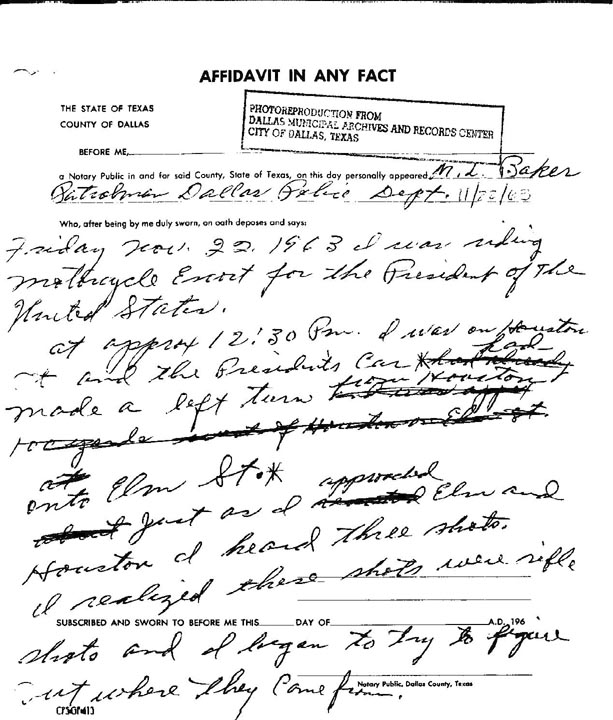 AFFIDAVIT IN ANY FACT
THE STATE OF TEXAS
COUNTY OF DALLAS
PHOTOREPRODUCTION FROM
DALLAS MUNICIPAL ARCHIVES AND RECORDS CENTER
CITY OF DALLAS, TEXAS
BEFORE ME,
a Notary Public in and for said County, State of Texas, on this day personally appeared M. L. Baker
Patrolman Dallas Police Dept. 11/22/63
Who, after being by me duly sworn, on oath deposes and says:
Friday Nov. 22 1963 I was riding
motorcycle Escort for the President of The
United States.
at approx 12:30 Pm. I was on Houston
St and the Presidents Car * had already had
made a left turn from Houston
onto Elm St. *
about Just as I approached Elm and
Houston I heard three shots.
I realized these shots were rifle
SUBSCRIBED AND SWORN TO BEFORE ME THIS DAY OF A.D. 196
shots and I began to try to figure
out where they Came from.
Notary Public, Dallas County, Texas